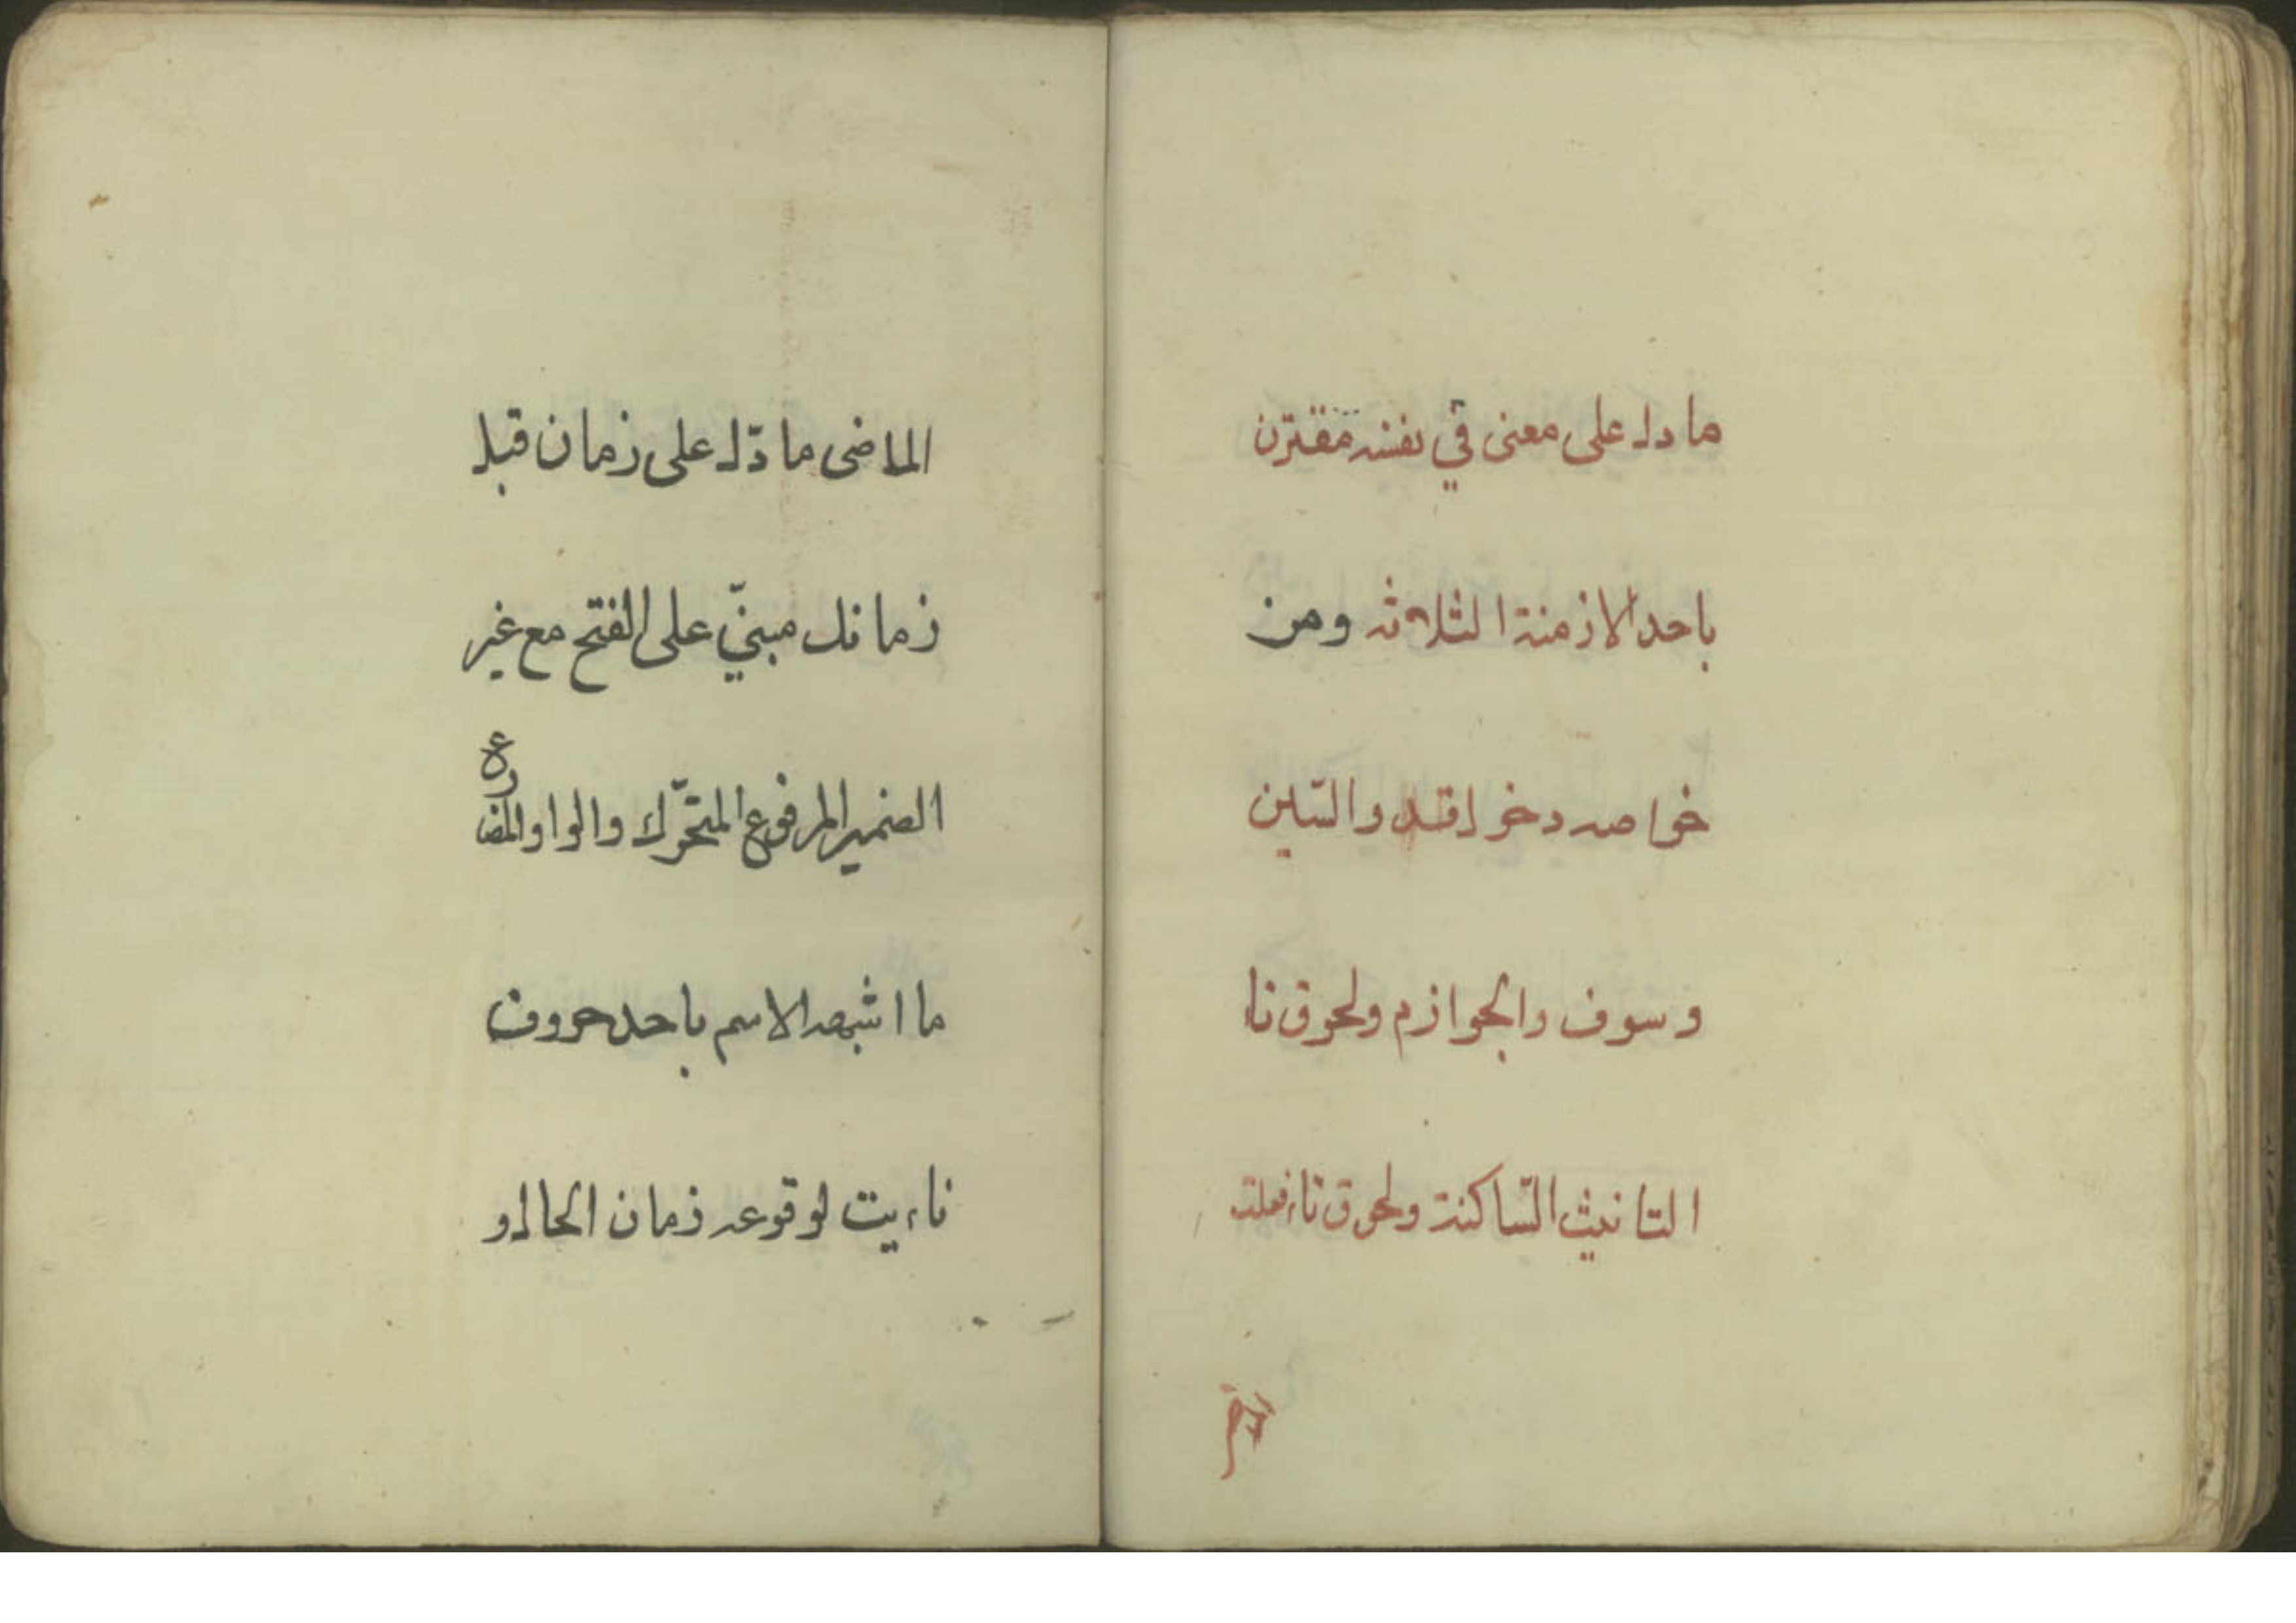 ما دل على معنى في نفسه مقترن
باحد الازمنة الثلاثه ومن
خواصه دخول قد والسّين
وسوف والجوازم ولحوق تاء
التانيث السّاكنة ولحوق تاء فعلت
الماضى ما دّل على زمان قبل
زمانك مبنيّ على الفتح مع غير
الضمير المرفوع المتحّرك والواو والمضارع
ما اشبه الاسم باحد حروف
نايت لوقوعه زمان الحال او